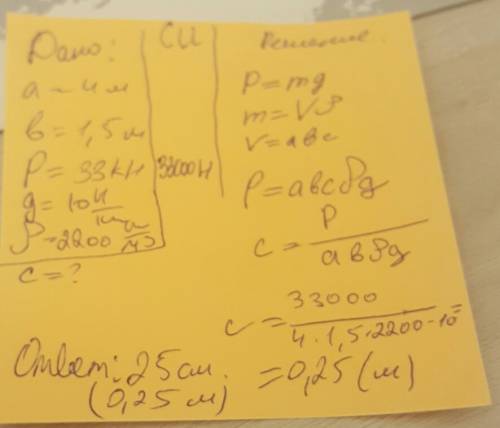 Дано:
a = 4 м
b = 1,5 м
P = 33 кН
g = 10 Н/кг
ρ = 2200 кг/м³
c = ?
СИ
33000 Н
Решение.
P = mg
m = Vρ
V = abc
P = abcρg
c = P / abρg
c = 33000 / 4·1,5·2200·10 =
= 0,25 (м)
Ответ: 25 см.
(0,25 м)